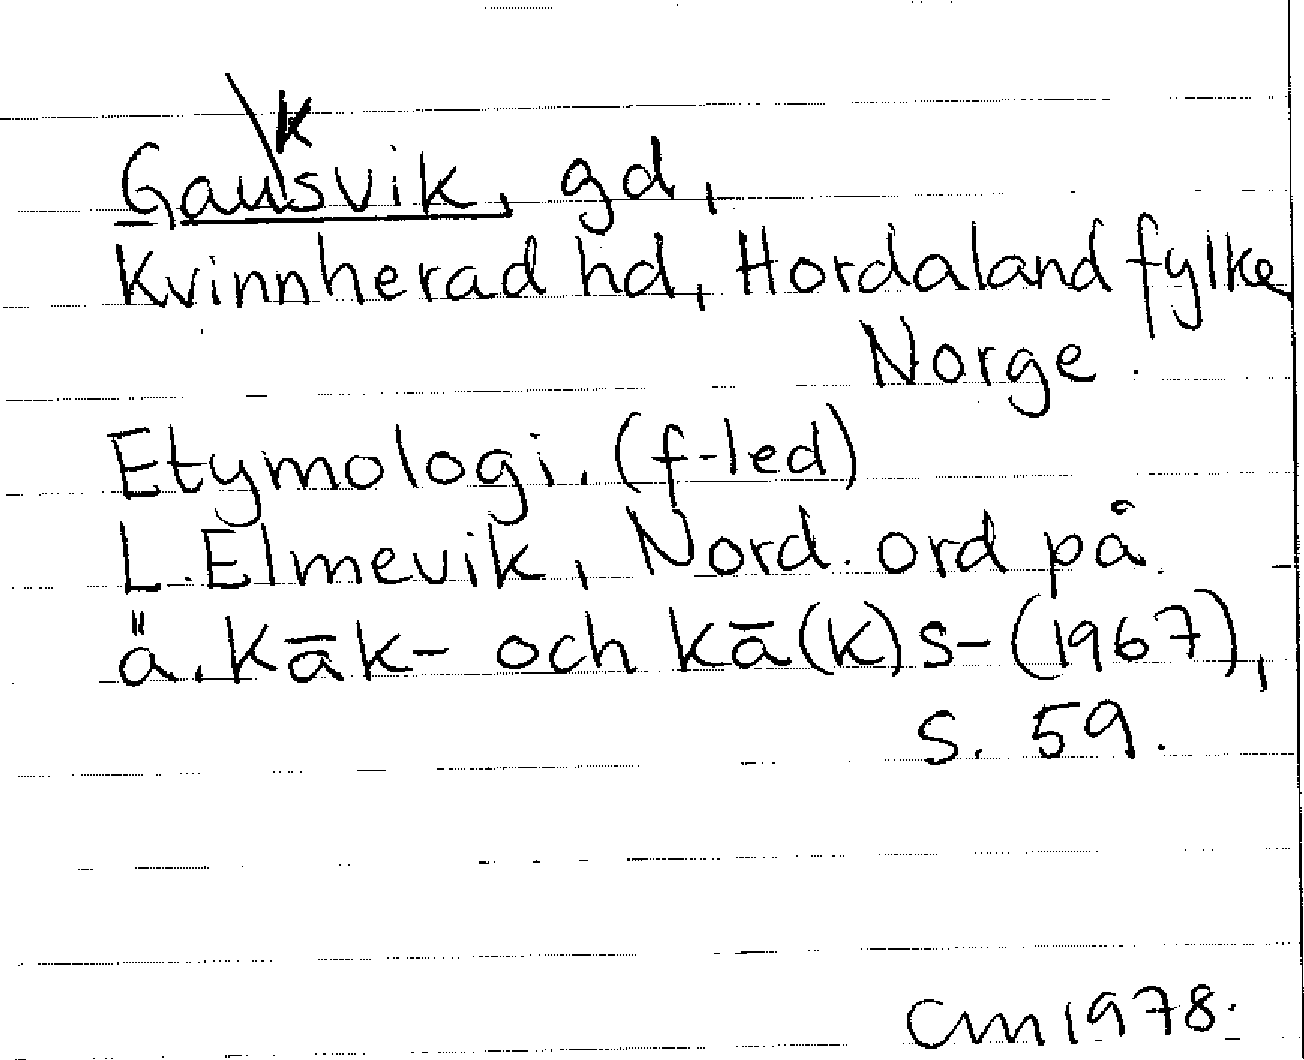 Gauksvik, gd,
Kvinnherad hd, Hordaland fylke
Norge.
Etymologi. (f-led)
L. Elmevik, Nord. ord på
ä. kāk- och kā(k)s- (1967),
s. 59.
CM 1978.